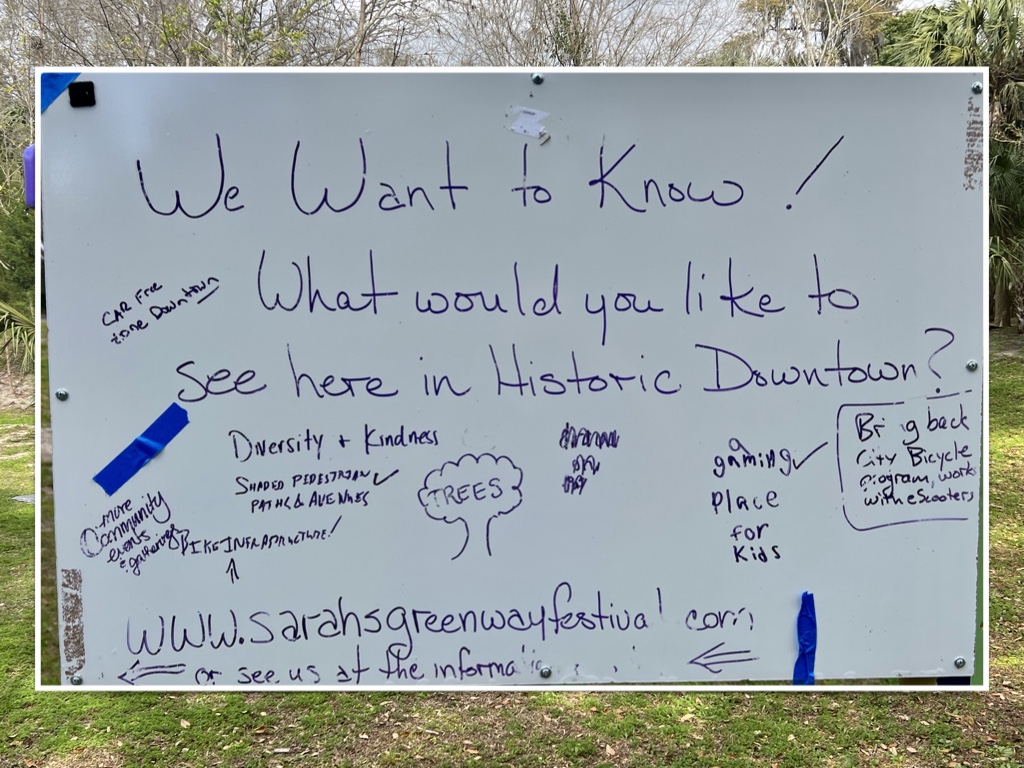 We Want to Know!
What would you like to
see here in Historic Downtown?
CAR Free
zone Downtown
Diversity + Kindness
SHADED PEDESTRIAN
PATHS & AVENUES
BIKE INFRASTRUCTURE!
more
Community
events
& gatherings
TREES
a
gaming
PLace
for
KidS
Bring back
City Bicycle
program, works
with eScooters
www.sarahsgreenwayfestival com
or see us at the informa